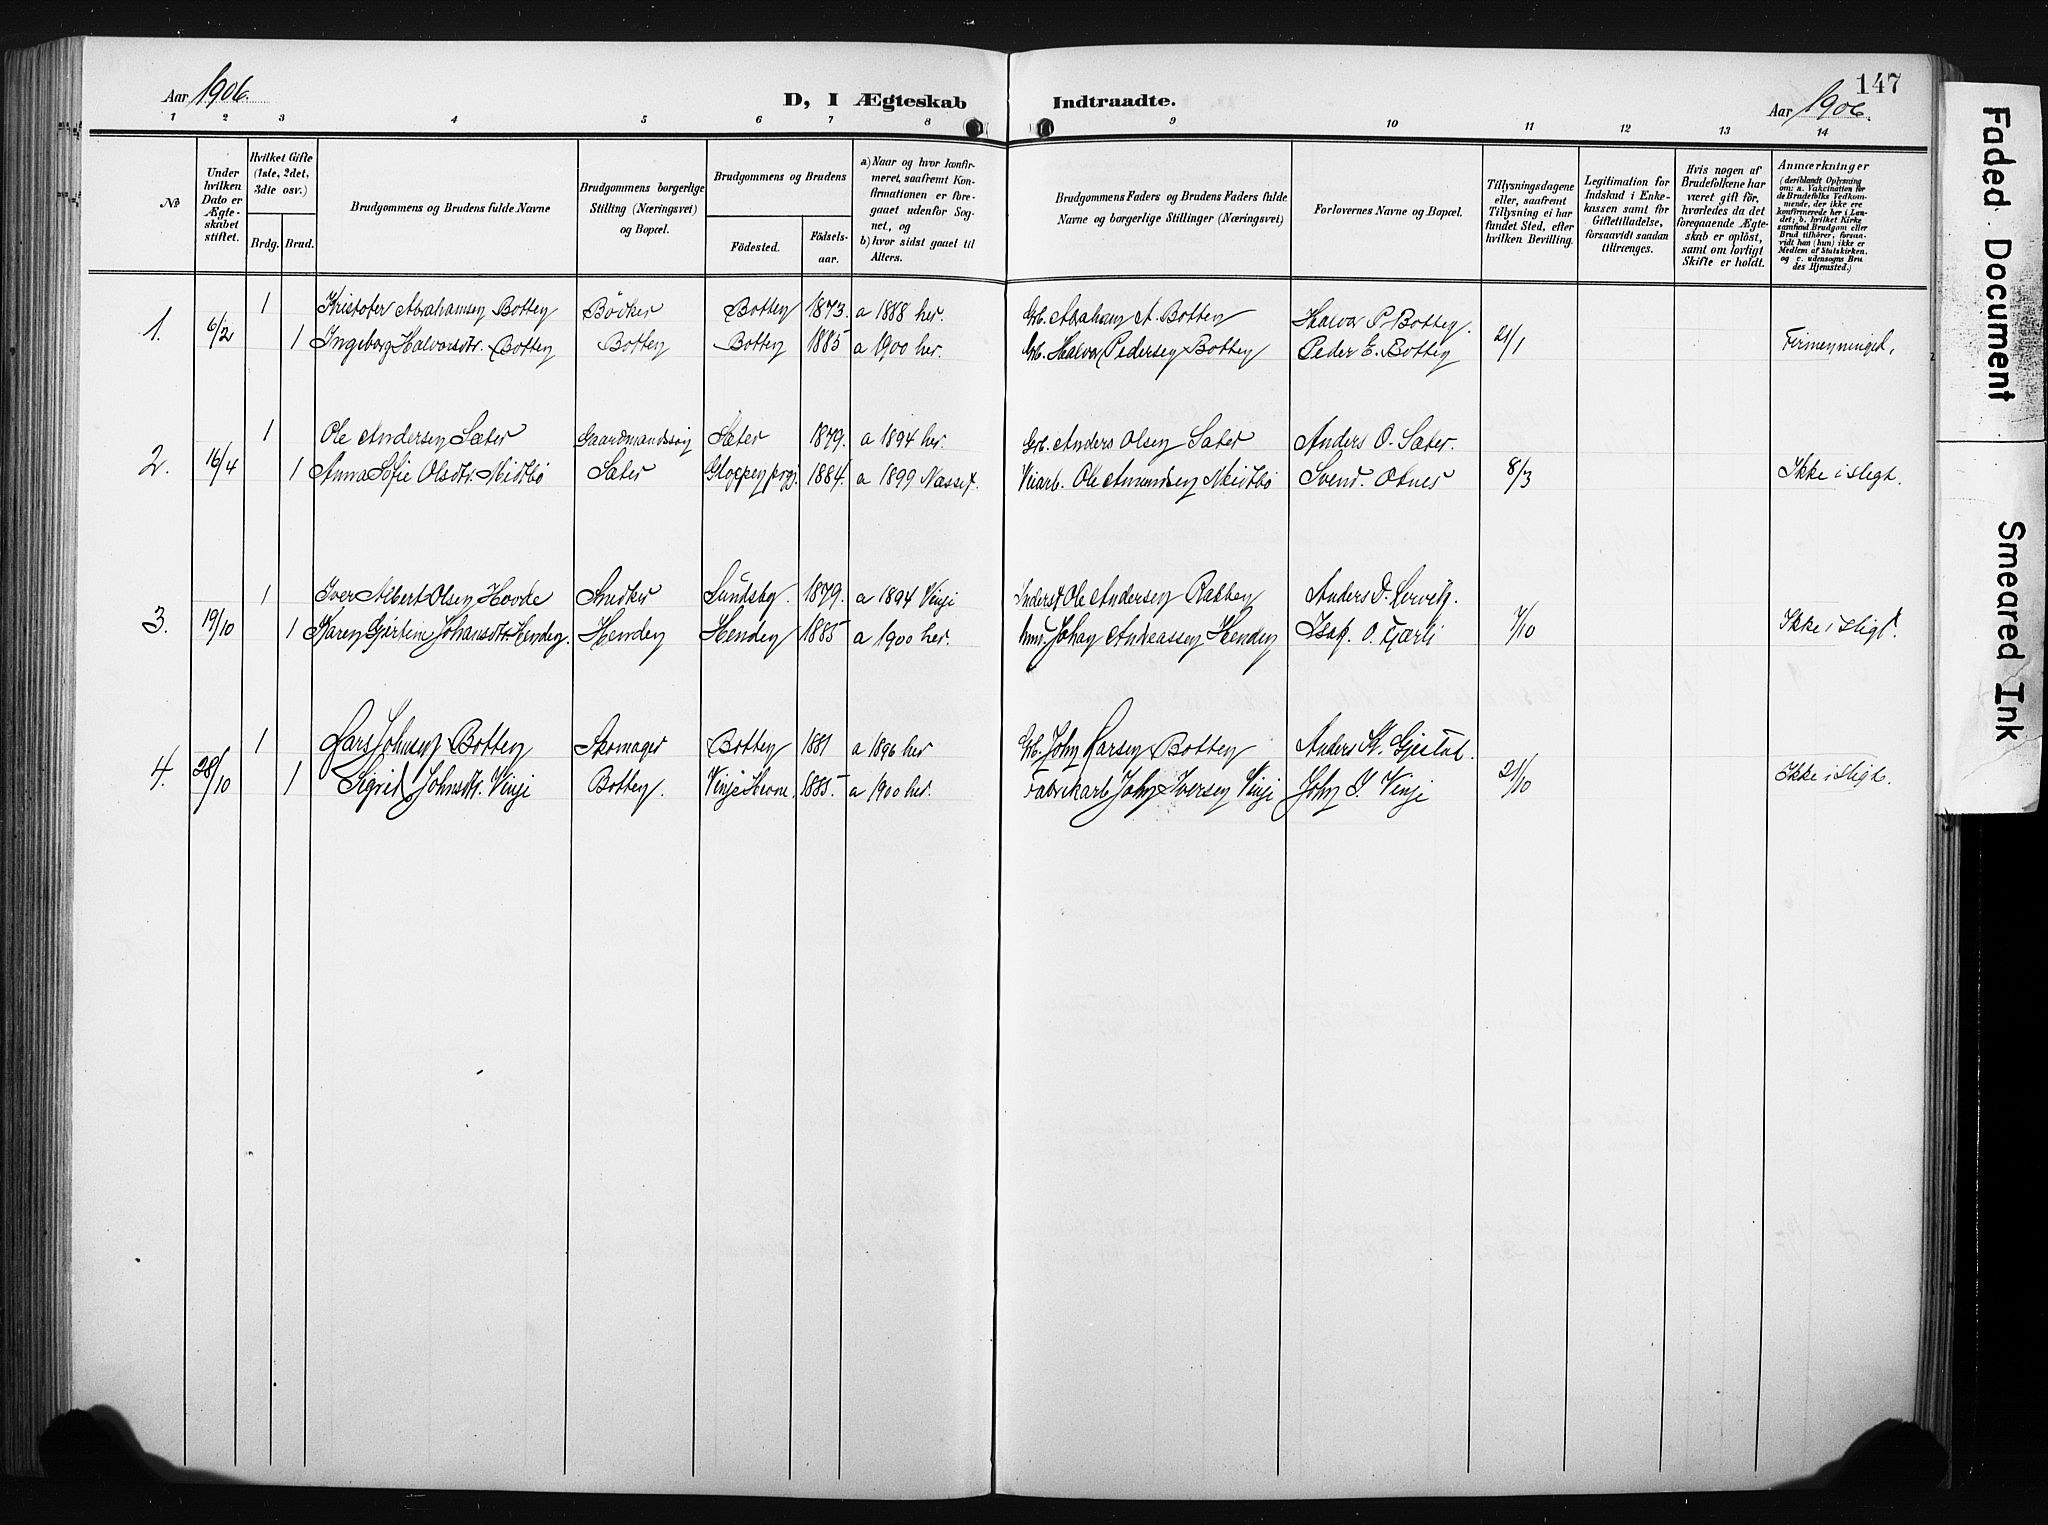 Aar 1906.
D, I Ægteskab
Indtraadte.
147
Aar 1906.
1 2 3 4 5 6 7 8 9 10 11 12 13 14
No
Under hvilken Dato er Ægteskabet stiftet.
Hvilket Gifte (1ste, 2det, 3die osv.)
Brdg. Brud.
Brudgommens og Brudens fulde Navne
Brudgommens borgerlige Stilling (Næringsvei) og Bopæl.
Brudgommens og Brudens
Fødested.
Fødselsaar.
a) Naar og hvor konfirmeret, saafremt Konfirmationen er foregaaet udenfor Sognet, og
b) hvor sidst gaaet til Alters.
Brudgommens Faders og Brudens Faders fulde Navne og borgerlige Stillinger (Næringsvei)
Forlovernes Navne og Bopæl.
Tillysningsdagene eller, saafremt Tillysning ei har fundet Sted, efter hvilken Bevilling.
Legitimation for Indskud i Enkekassen samt for Giftetilladelse, forsaavidt saadan tiltrænges.
Hvis nogen af Brudefolkene har været gift før, hvorledes da det foregaaende Ægteskab er opløst, samt om lovligt Skifte er holdt.
Anmærkninger
(deriblandt Oplysning om: a. Vakcination for de Brudefolks Vedkommende, der ikke ere konfirmerede her i Landet; b. hvilket Kirkesamfund Brudgom eller Brud tilhører, forsaavidt han (hun) ikke er Medlem af Statskirken, og c. udensogns Brudes Hjemsted.)
1 Kristofer Abrahamsen Botten Bödker Botten 1873. a 1888 her. Grb. Abraham A. Botten Halvor P. Botten.
1. 6/2 1 Ingeborg Halvorsdtr. Botten Botten Botten 1885 a 1900 her. Grb. Halvor Pedersen Botten Peder E. Botten 21/1 Firmenninged.
1 Ole Andersen Sæter Gaardmandssøn Sæter 1879. a 1894 her. Grb. Anders Olsen Sæter Anders O. Sæter.
2. 16/4 1 Anna Sofie Olsdtr. Midtbö Sæter Gloppen prgj. 1884. a 1899 Næsset. Veiarb. Ole Amundsen Midtbö Svend. Otnes 8/3 Ikke i slegt.
1 Iver Albert Olsen Hovde Snedker Sundsby. 1879. a 1894 Vinje Inderst Ole Andersen Rakben Anders D. Lervik.
3. 19/10 1 Karen Gjertine Johansdtr. Henden. Henden Henden 1885 a 1900 her. Johan Andreassen Henden Isak. O. Fjærli 7/10 Ikke i slegt.
1 Lars Johnsen Botten Skomager Botten 1881 a 1896 her Grb. John Larsen Botten Anders K. Gjestad.
4. 28/10 1 Sigrid Johnsdtr. Vinje Botten. Vinje Hevne. 1885 a 1900 her. Fabrikarb John Iversen Vinje John I. Vinje 21/10 Ikke i slegt.
Faded Document
Smeared Ink